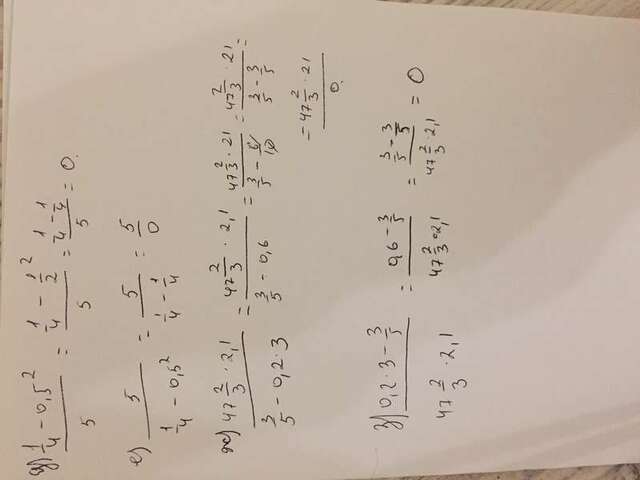 д) (1/4 - 0,5²)/5 = (1/4 - 1/2²)/5 = (1/4 - 1/4)/5 = 0.
е) 5/(1/4 - 0,5²) = 5/(1/4 - 1/4) = 5/0
ж) (47 2/3 · 2,1)/(3/5 - 0,2 · 3) = (47 2/3 · 2,1)/(3/5 - 0,6) = (47 2/3 · 21)/(3/5 - 6/10) = (47 2/3 · 21)/(3/5 - 3/5) =
= (47 2/3 · 21)/0.
з) (0,2 · 3 - 3/5)/(47 2/3 · 2,1) = (0,6 - 3/5)/(47 2/3 · 2,1) = (3/5 - 3/5)/(47 2/3 · 2,1) = 0